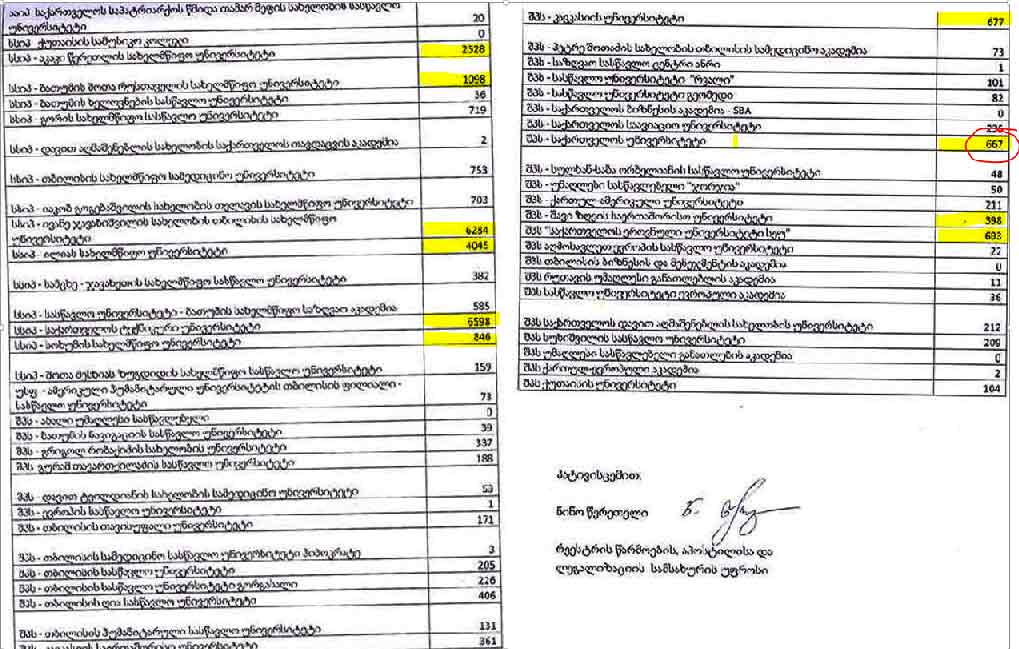 ააიპ საქართველოს საპატრიარქოს წმიდა თამარ მეფის სახელობის სასწავლო
უნივერსიტეტი 20
სსიპ - ქუთაისის სამუსიკო კოლეჯი 0
სსიპ - აკაკი წერეთლის სახელმწიფო უნივერსიტეტი 2528
სსიპ - ბათუმის შოთა რუსთაველის სახელმწიფო უნივერსიტეტი 1098
სსიპ - ბათუმის ხელოვნების სასწავლო უნივერსიტეტი 36
სსიპ - გორის სახელმწიფო სასწავლო უნივერსიტეტი 719
სსიპ - დავით აღმაშენებლის სახელობის საქართველოს თავდაცვის აკადემია 2
სსიპ - თბილისის სახელმწიფო სამედიცინო უნივერსიტეტი 753
სსიპ - იაკობ გოგებაშვილის სახელობის თელავის სახელმწიფო უნივერსიტეტი 703
სსიპ - ივანე ჯავახიშვილის სახელობის თბილისის სახელმწიფო
უნივერსიტეტი 6284
სსიპ - ილიას სახელმწიფო უნივერსიტეტი 4045
სსიპ - სამცხე - ჯავახეთის სახელმწიფო სასწავლო უნივერსიტეტი 382
სსიპ - სასწავლო უნივერსიტეტი - ბათუმის სახელმწიფო საზღვაო აკადემია 585
სსიპ - საქართველოს ტექნიკური უნივერსიტეტი 6598
სსიპ - სოხუმის სახელმწიფო უნივერსიტეტი 846
სსიპ - შოთა მესხიას ზუგდიდის სახელმწიფო სასწავლო უნივერსიტეტი 159
უსფ - ამერიკული ჰუმანიტარული უნივერსიტეტის თბილისის ფილიალი -
სასწავლო უნივერსიტეტი 73
შპს - ახალი უმაღლესი სასწავლებელი 0
შპს - ბათუმის ნავიგაციის სასწავლო უნივერსიტეტი 39
შპს - გრიგოლ რობაქიძის სახელობის უნივერსიტეტი 337
შპს გურამ თავართქილაძის სასწავლო უნივერსიტეტი 188
შპს - დავით ტვილდიანის სახელობის სამედიცინო უნივერსიტეტი 53
შპს - ევროპის სასწავლო უნივერსიტეტი 1
შპს - თბილისის თავისუფალი უნივერსიტეტი 171
შპს - თბილისის სამედიცინო სასწავლო უნივერსიტეტი ჰიპოკრატე 3
შპს - თბილისის სასწავლო უნივერსიტეტი 205
შპს - თბილისის სასწავლო უნივერსიტეტი გორგასალი 226
შპს - თბილისის ღია სასწავლო უნივერსიტეტი 406
შპს - თბილისის ჰუმანიტარული სასწავლო უნივერსიტეტი 131
შპს - კავკასიის საერთაშორისო უნივერსიტეტი 361
შპს - კავკასიის უნივერსიტეტი 677
შპს - პეტრე შოთაძის სახელობის თბილისის სამედიცინო აკადემია 73
შპს - საზღვაო სასწავლო ცენტრი ანრი 1
შპს - სასწავლო უნივერსიტეტი "რვალი" 101
შპს - სასწავლო უნივერსიტეტი გეომედი 82
შპს - საქართველოს ბიზნესის აკადემია - SBA 0
შპს - საქართველოს საავიაციო უნივერსიტეტი 236
შპს - საქართველოს უნივერსიტეტი 667
შპს - სულხან-საბა ორბელიანის სასწავლო უნივერსიტეტი 48
შპს - უმაღლესი სასწავლებელი "გორგია" 50
შპს - ქართულ-ამერიკული უნივერსიტეტი 211
შპს - შავი ზღვის საერთაშორისო უნივერსიტეტი 398
შპს "საქართველოს ეროვნული უნივერსიტეტი სეუ" 693
შპს აღმოსავლეთ ევროპის სასწავლო უნივერსიტეტი 22
შპს თბილისის ბიზნესის და მენეჯმენტის აკადემია 0
შპს რუსთავის უმაღლესი განათლების აკადემია 11
შპს სასწავლო უნივერსიტეტი ევროპული აკადემია 36
შპს საქართველოს დავით აღმაშენებლის სახელობის უნივერსიტეტი 212
შპს სუხიშვილის სასწავლო უნივერსიტეტი 209
შპს უმაღლესი სასწავლებელი განათლების აკადემია 0
შპს ქართულ-ევროპული აკადემია 2
შპს ქუთაისის უნივერსიტეტი 104
პატივისცემით,
ნინო წერეთელი
რეესტრის წარმოების, აპოსტილისა და
ლეგალიზაციის სამსახურის უფროსი